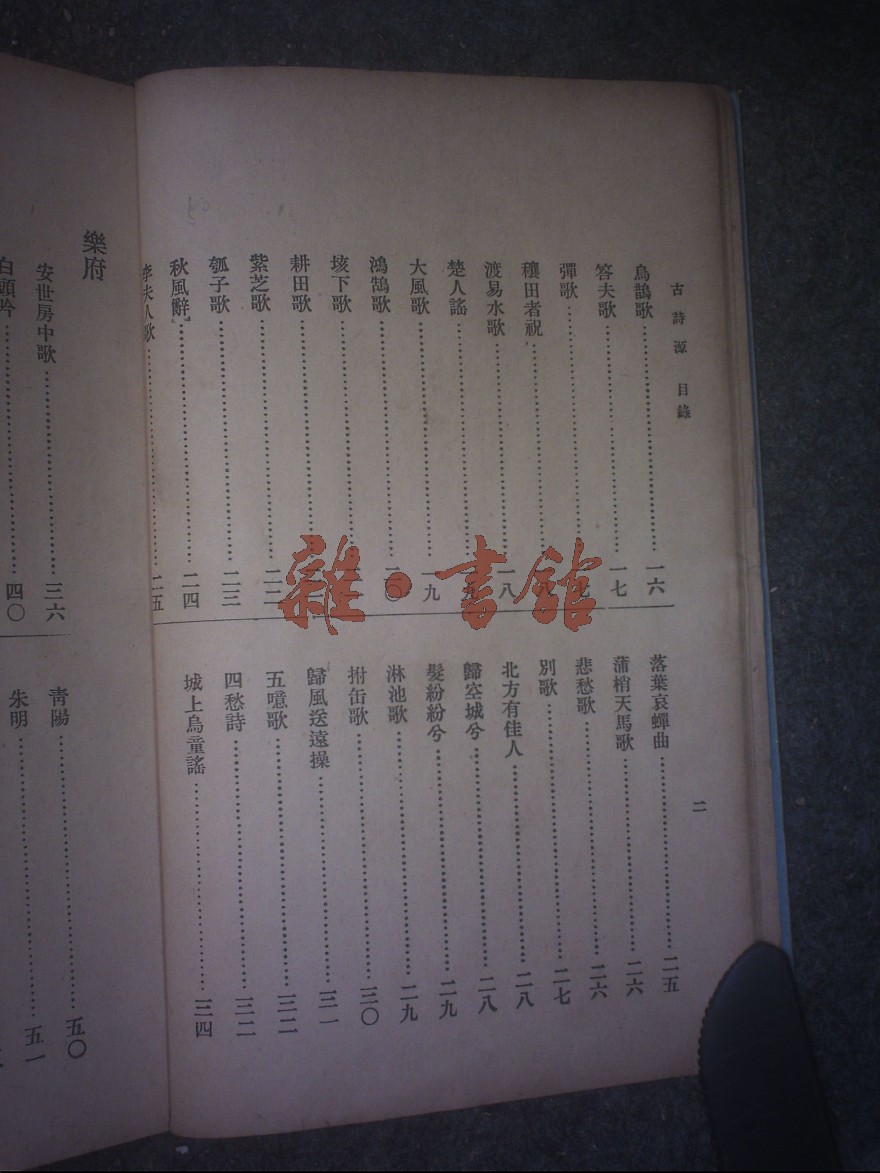 古詩源 目錄
二
烏鵲歌……一六
答夫歌……一七
彈歌……
穰田者祝……
渡易水歌……一八
楚人謠……
大風歌……一九
鴻鵠歌……二〇
垓下歌……
耕田歌……
紫芝歌……二二
瓠子歌……二三
秋風辭……二四
李夫人歌……二五
落葉哀蟬曲……二五
蒲梢天馬歌……二六
悲愁歌……二六
別歌……二七
北方有佳人……二八
歸空城兮……二八
髮紛紛兮……二九
淋池歌……二九
拊缶歌……三〇
歸風送遠操……三一
五噫歌……三二
四愁詩……三二
城上烏童謠……三四
樂府
安世房中歌……三六
白頭吟……四〇
青陽……五〇
朱明……五一
雜·書館